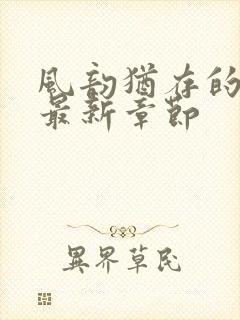 風韵猶存的
最新章節
異界草民